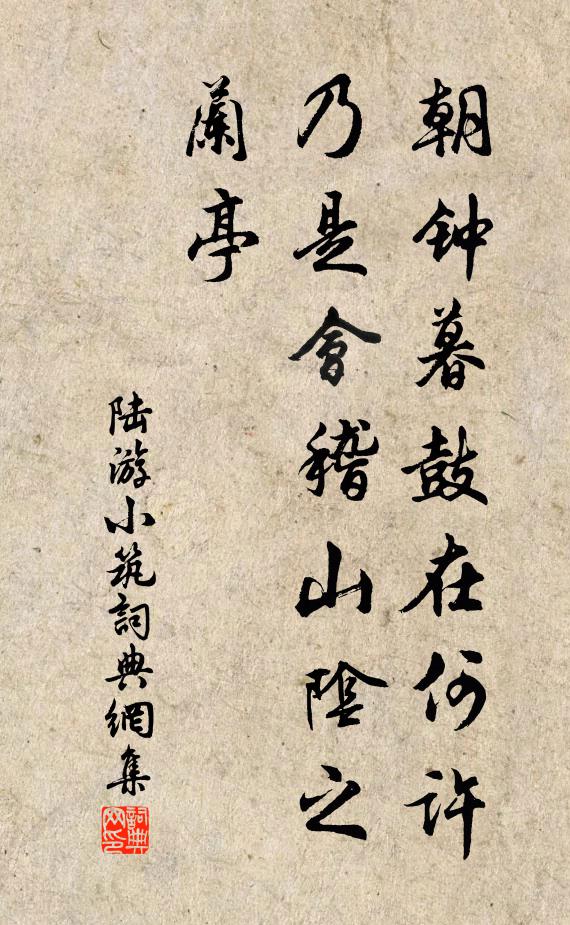 朝钟暮鼓在何许
乃是會稽山陰之
蘭亭
陆游小筑詞典網集
詞典
网印